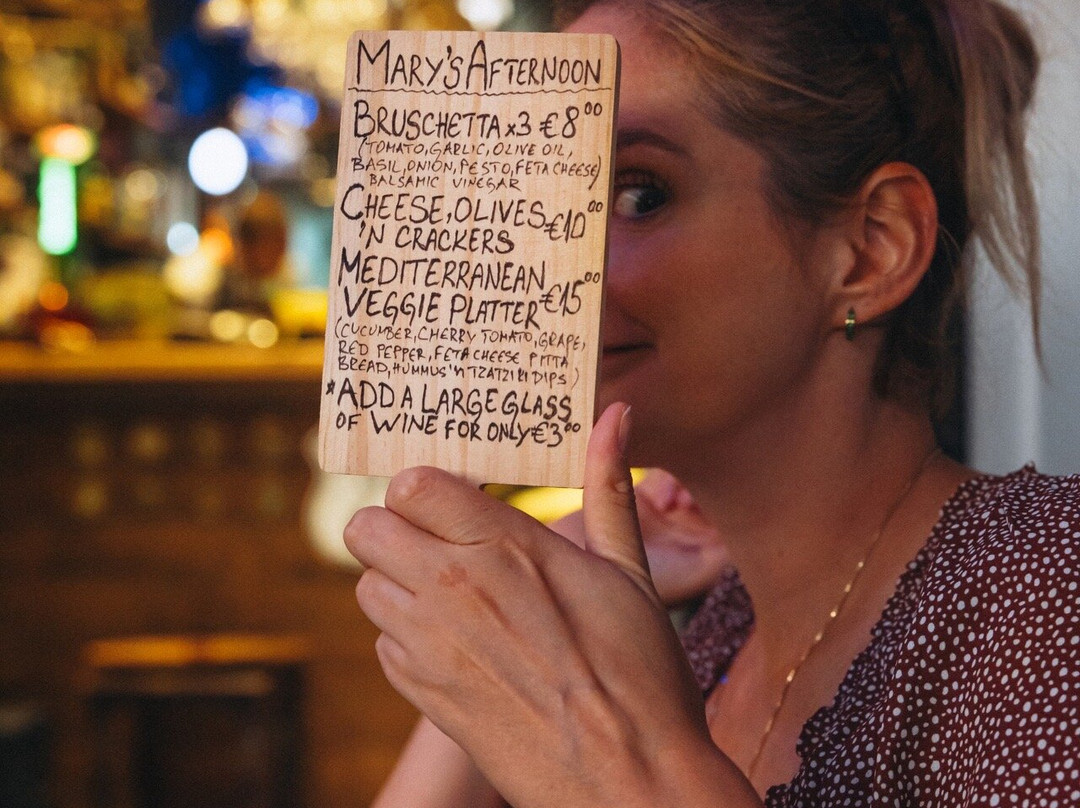 MARY'S AFTERNOON
BRUSCHETTA x3 €8⁰⁰
(TOMATO, GARLIC, OLIVE OIL,
BASIL, ONION, PESTO, FETA CHEESE)
BALSAMIC VINEGAR
CHEESE, OLIVES €10⁰⁰
'N CRACKERS
MEDITERRANEAN
VEGGIE PLATTER €15⁰⁰
(CUCUMBER, CHERRY TOMATO, GRAPE,
RED PEPPER, FETA CHEESE PITTA
BREAD, HUMMUS 'n TZATZIKI DIPS)
*ADD A LARGE GLASS
OF WINE FOR ONLY €3⁰⁰